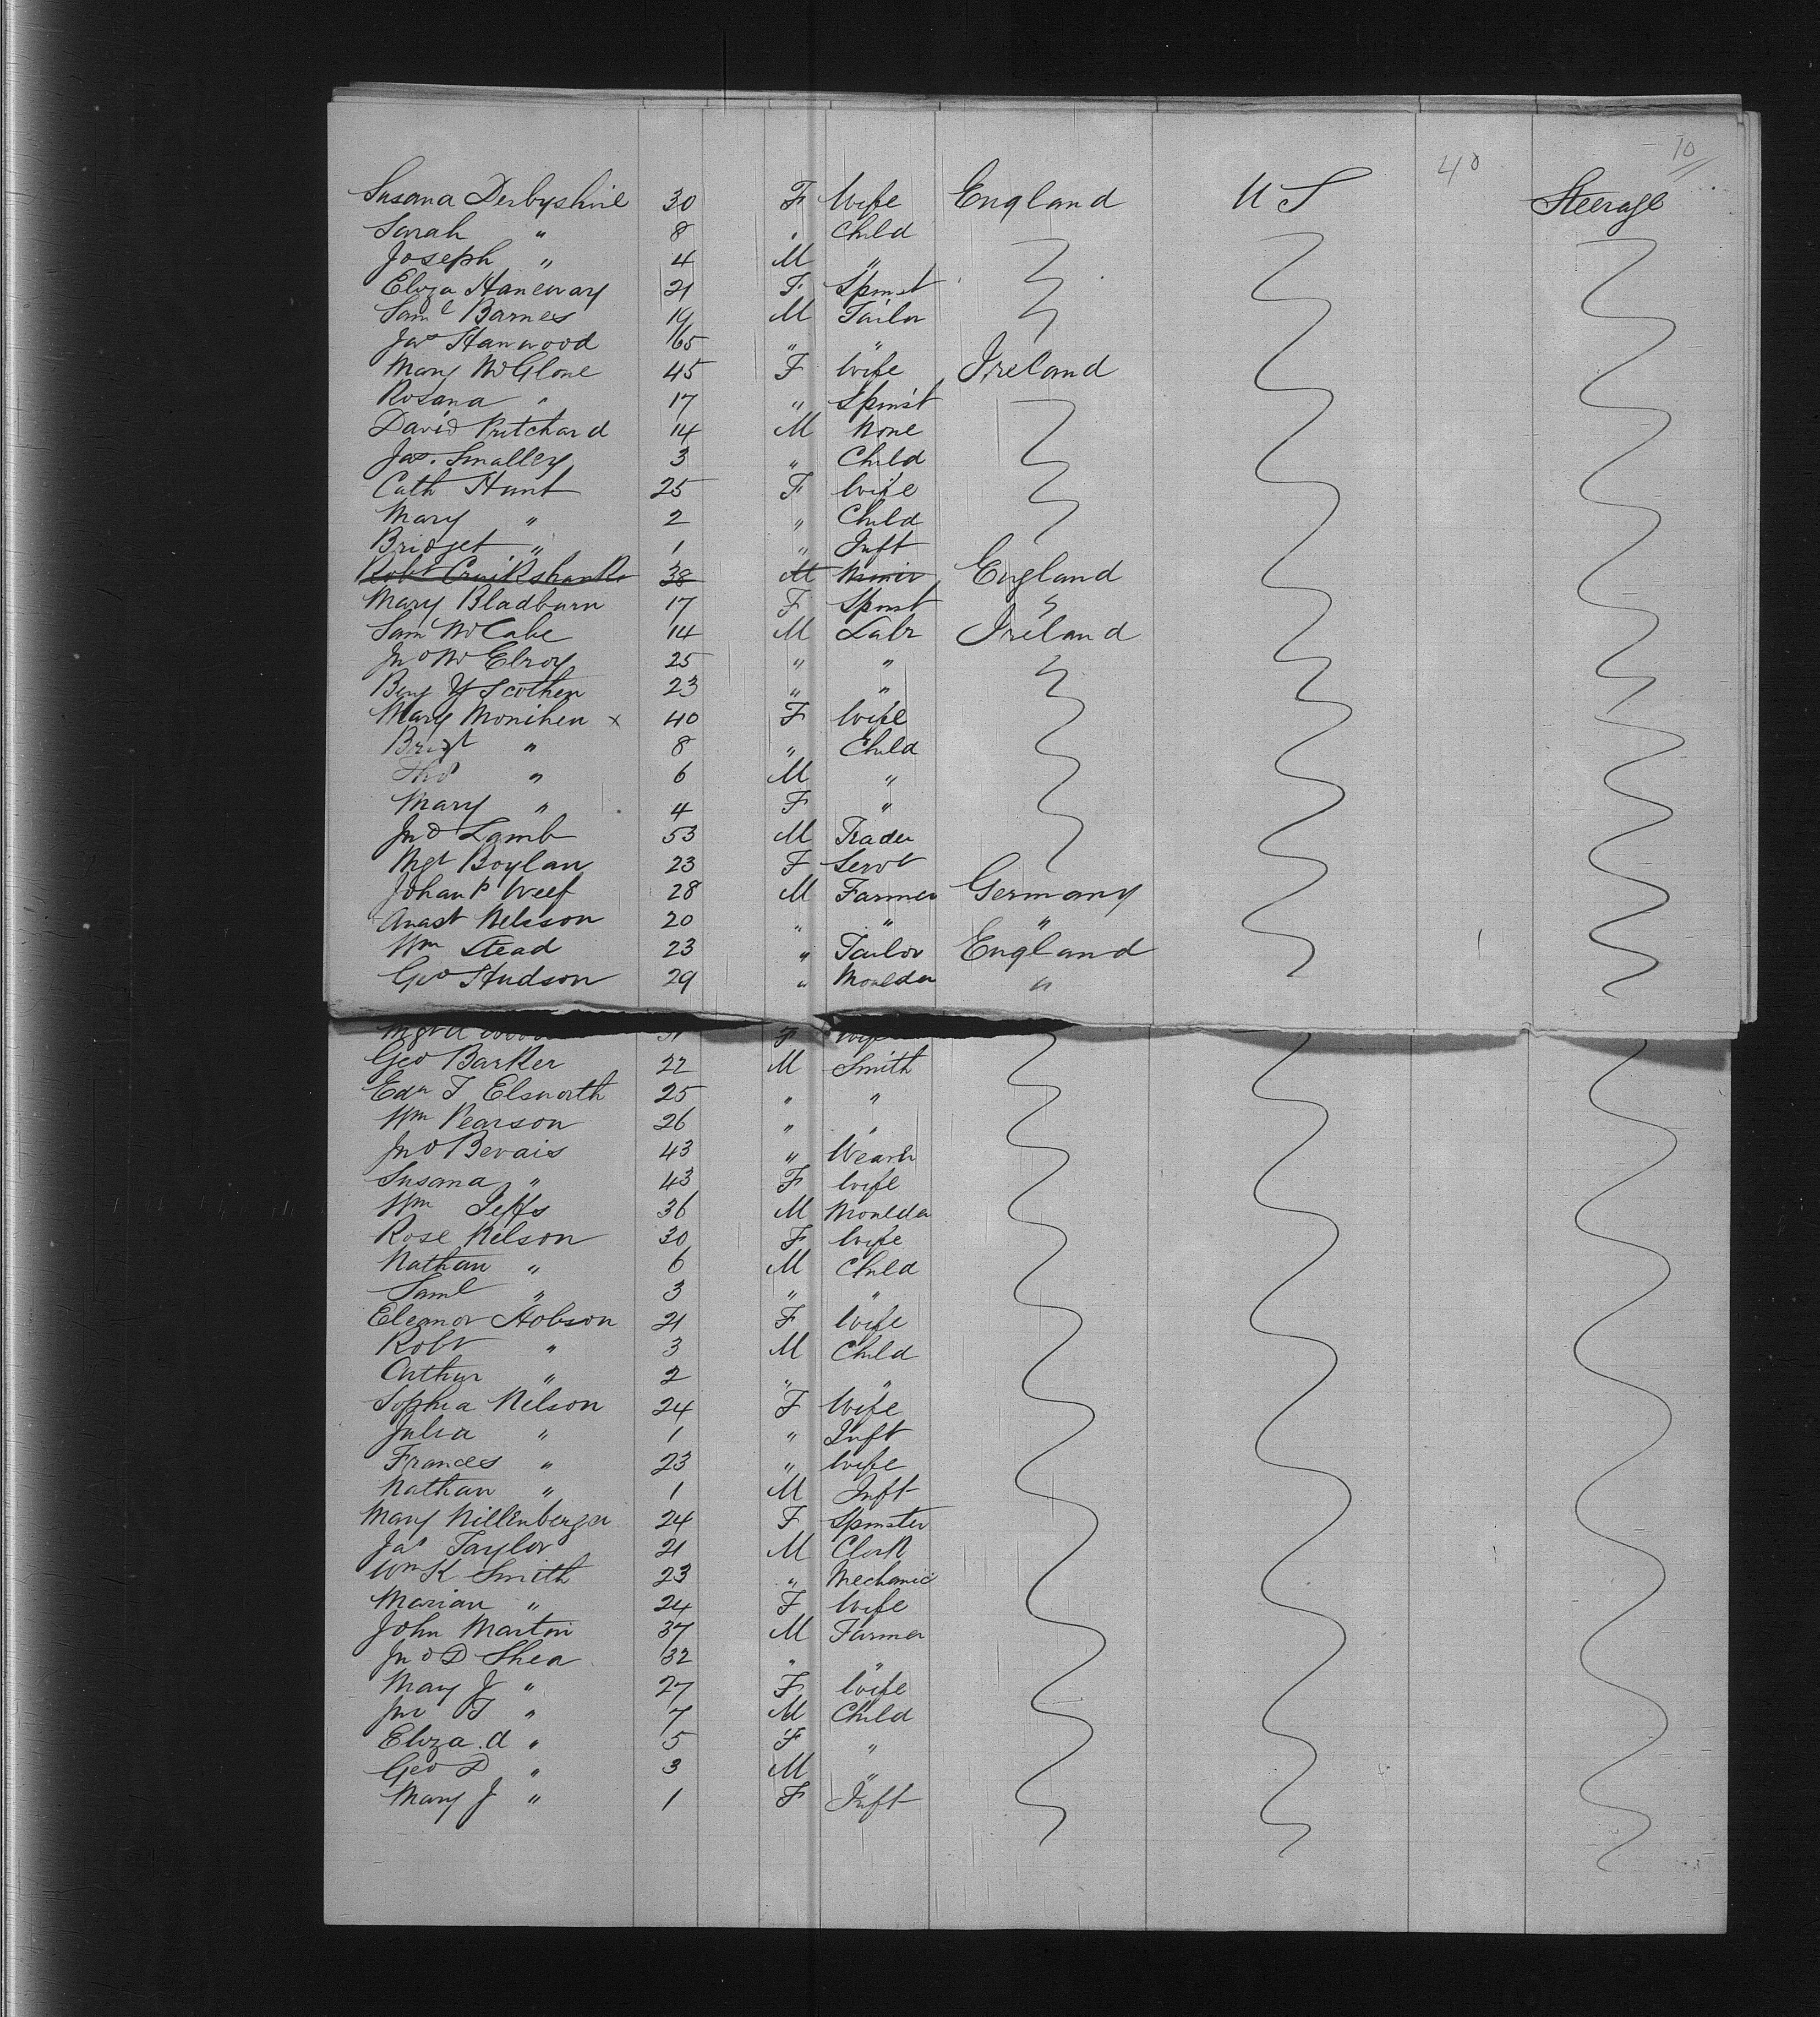 40 10
Susana Derbyshire 30 F Wife England U S Steerage
Sarah " 8 " Child
Joseph " 4 M "
Eliza Haneway 21 F Spinst
Saml Barnes 19 M Tailor
Jas Hanwood 65 " "
Mary McGlone 45 F Wife Ireland
Rosana " 17 " Spinst
David Pritchard 14 M None
Jas. Smalley 3 " Child
Cath Hunt 25 F Wife
Mary " 2 " Child
Bridget " 1 " Inft
Robt Cruikshanks 38 M Miner England
Mary Bladburn 17 F Spinst "
Sam McCabe 14 M Labr Ireland
Jno McElroy 25 " "
Benj Y Scothen 23 " "
Mary Monihen x 40 F Wife
Brigt " 8 " Child
Thos " 6 M "
Mary " 4 F "
Jno Lamb 53 M Trader
Mgt Boylan 23 F Servt
Johan P Weef 28 M Farmer Germany
Anast Nelsson 20 " " "
Wm Stead 23 " Tailor England
Geo Hudson 29 " Moulder "
F
Geo Barker 22 M Smith
Edn T Elsworth 25 " "
Wm Pearson 26 " "
Jno Bevais 43 " Weavr
Susana " 43 F Wife
Wm Jeffs 36 M Moulder
Rose Nelson 30 F Wife
Nathan " 6 M Child
Saml " 3 " "
Eleanor Hobson 21 F Wife
Robt " 3 M Child
Arthur " 2 " "
Sophia Nelson 24 F Wife
Julia " 1 " Inft
Frances " 23 " Wife
Nathan " 1 M Inft
Mary Nillenberger 24 F Spinster
Jas Taylor 21 M Clerk
Wm K Smith 23 " Mechanic
Marian " 24 F Wife
John Martin 37 M Farmer
Jno D Shea 32 " "
Mary J " 27 F Wife
Jno T " 7 M Child
Eliza A " 5 F "
Geo D " 3 M "
Mary J " 1 F Inft